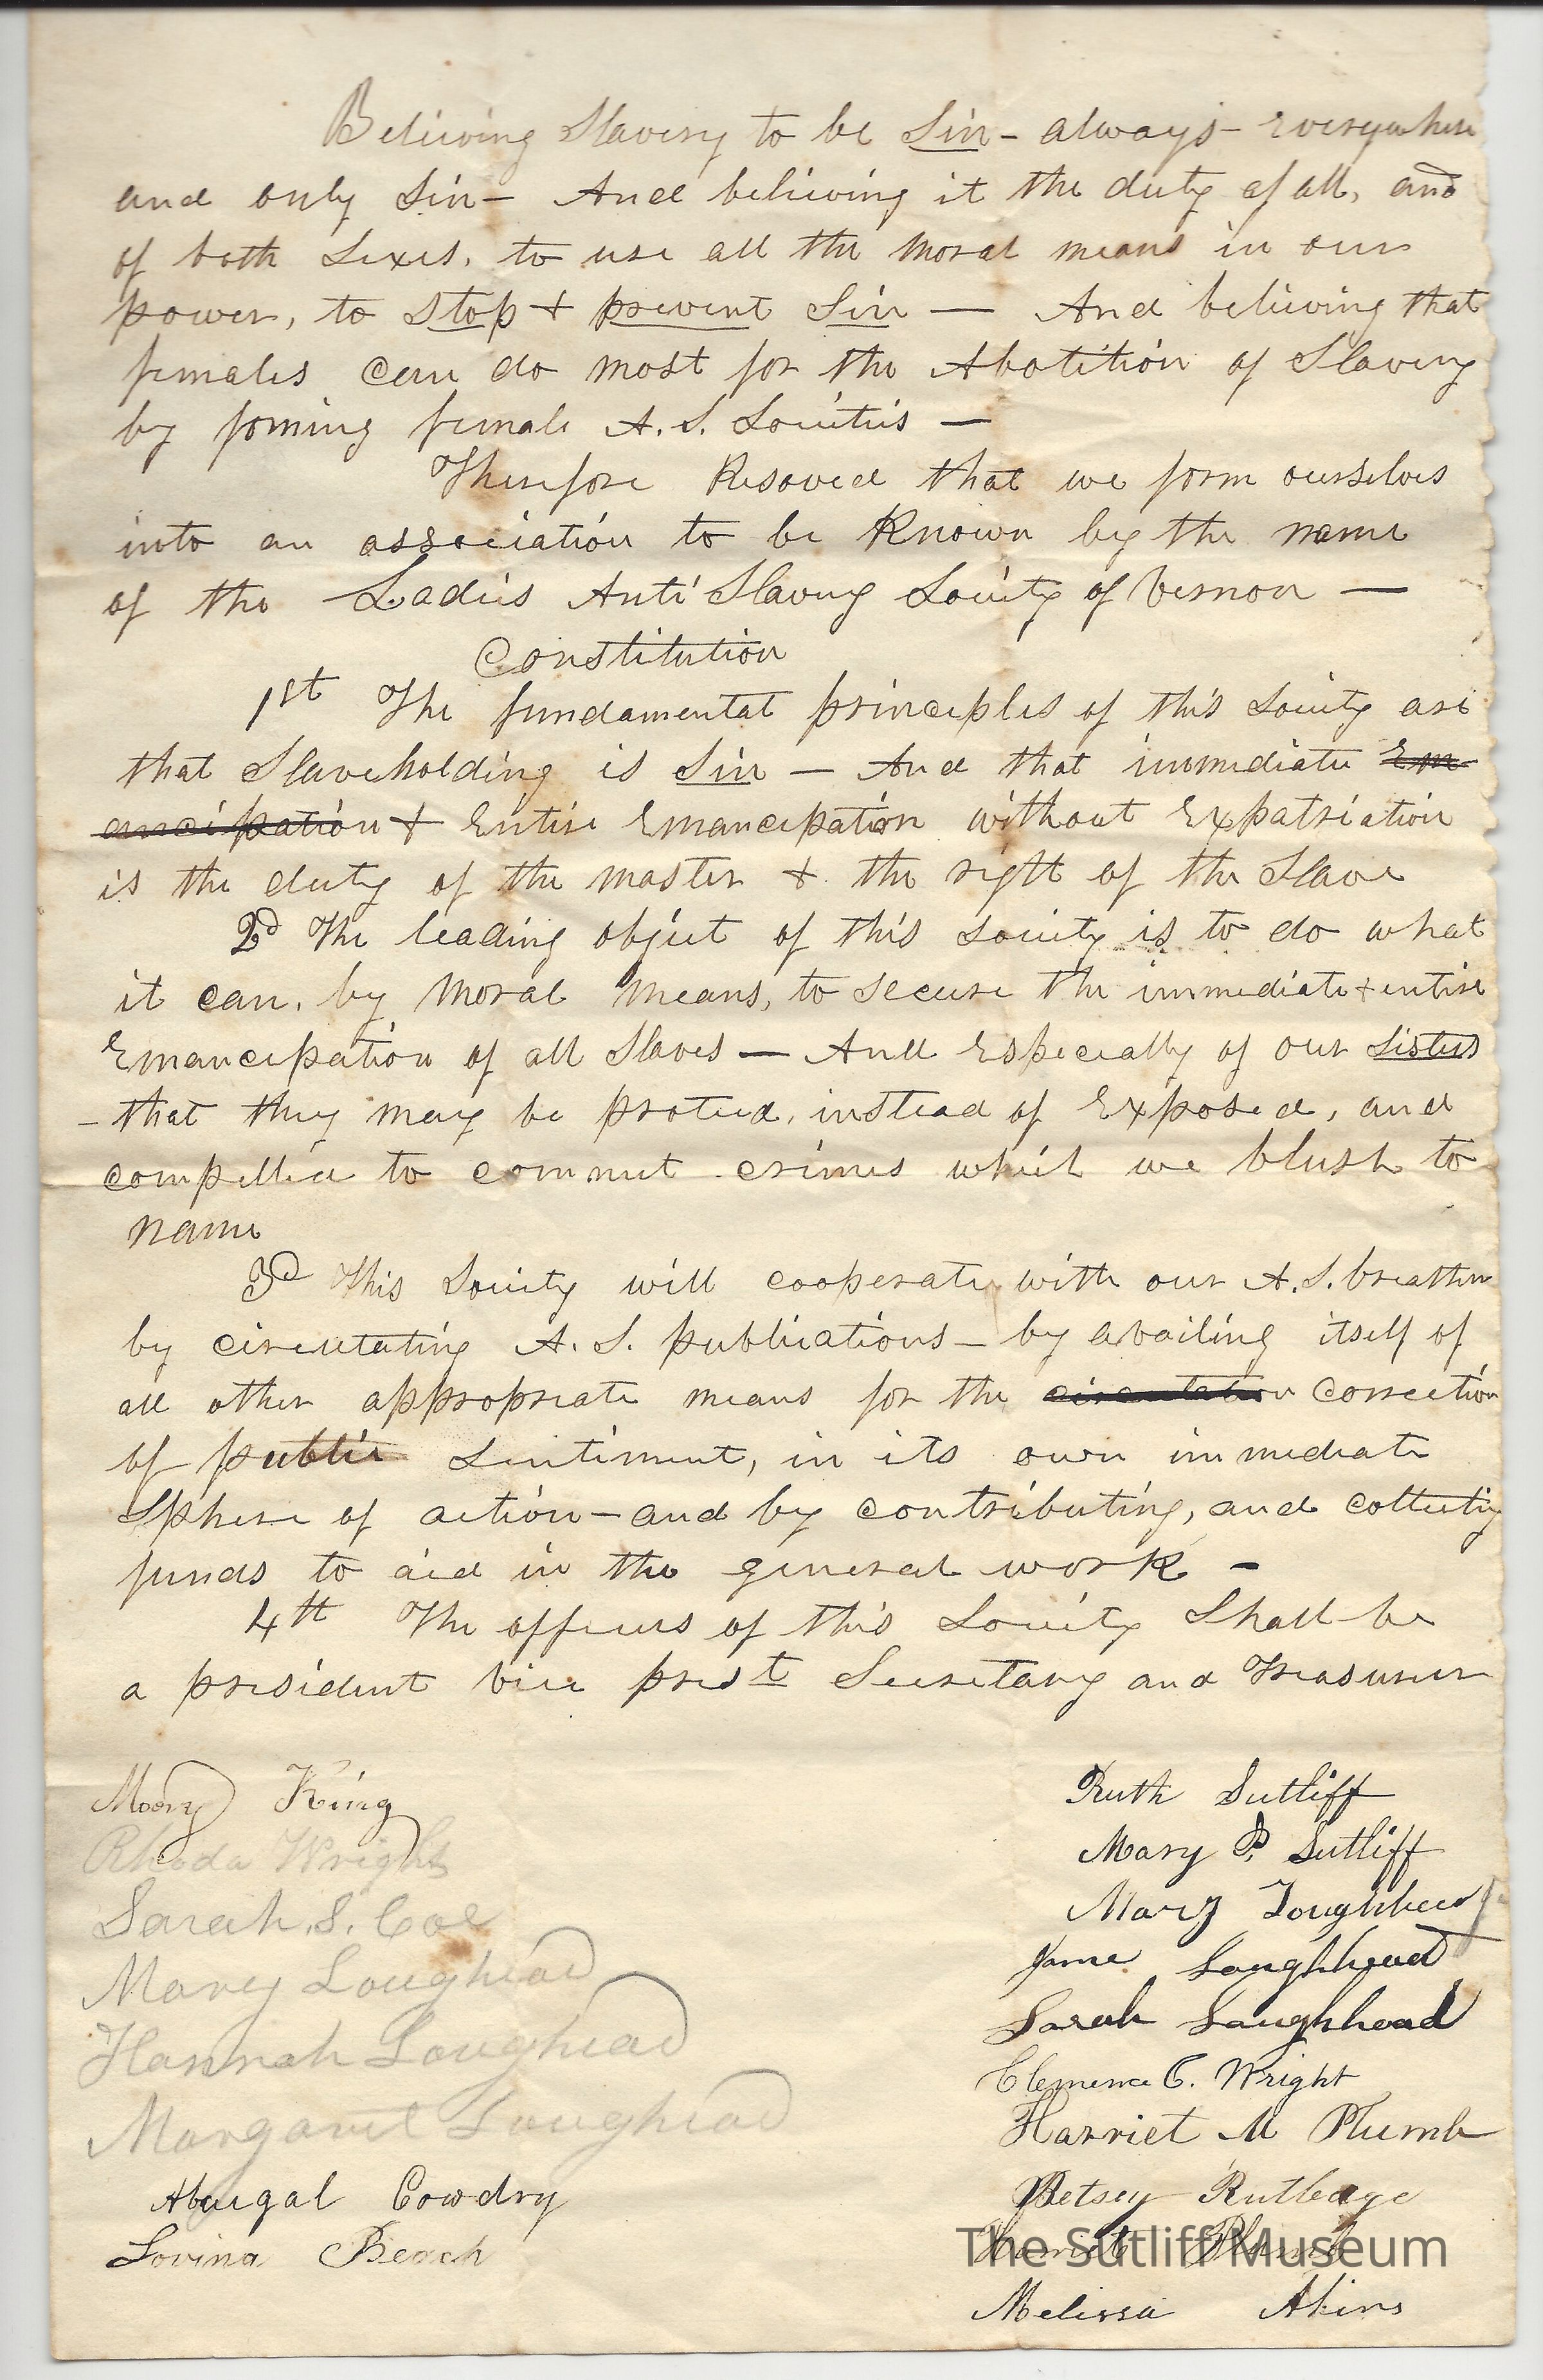 Believing Slavery to be Sin - always - Everywhere
and only Sin - And believing it the duty of all, and
of both Sexes, to use all the moral means in our
power, to Stop + prevent Sin — And believing that
females can do most for the Abolition of Slavery
by forming female A. S. Societies —
Therefore Resoved that we form ourselves
into an association to be Known by the name
of the Ladies Anti Slavery Society of Vernon —
Constitution
1st The fundamental principles of this Society are
that Slaveholding is Sin — And that immediate Em-
ancipation + Entire Emancipation without Expatriation
is the duty of the master + the right of the Slave
2d The leading object of this Society is to do what
it can, by moral means, to secure the immediate + entire
Emancipation of all Slaves — And Especially of our Sisters
- that they may be proteced, instead of Exposed, and
compelled to commit crimes which we blush to
name
3d This Society will cooperate with our A. S. breathren
by circulating A. S. publications - by availing itself of
all other appropreate means for the circulation correction
of public Sentiment, in its own immediate
Sphere of action - and by contributing, and collecting
funds to aid in the general work -
4th The officers of this Society Shall be
a president vice prest Secretary and Treasurer
Moory King
Rhoda Wright
Sarah S. Coe
Marey Loughead
Hannah Loughead
Margaret Loughead
Abugal Cowdry
Lovina Beach
Ruth Sutliff
Mary P. Sutliff
Mary Loughhead
Jame Loughhead
Sarah Laughhead
Clemence C. Wright
Harriet M Plumb
Betsey Rutledge
Harriet Plumb
The Sutliff Museum
Melissa Akins